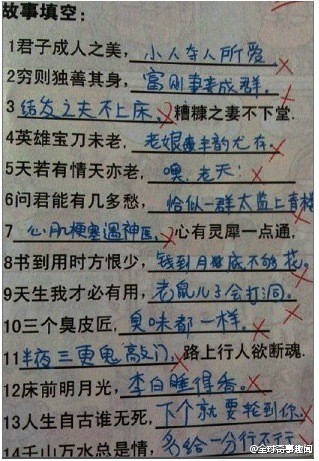 故事填空：
1君子成人之美，小人夺人所爱
2穷则独善其身，富则妻妾成群。
3结发之夫不上床，糟糠之妻不下堂.
4英雄宝刀未老，老娘风韵尤存.
5天若有情天亦老，噢，老天！
6问君能有几多愁，恰似一群太监上青楼
7心肌梗塞遇神医，心有灵犀一点通，
8书到用时方恨少，钱到月底不够花。
9天生我才必有用，老鼠儿子会打洞。
10三个臭皮匠，臭味都一样。
11半夜三更鬼敲门，路上行人欲断魂.
12床前明月光，李白睡得香。
13人生自古谁无死，下个就要轮到你
14千山万水总是情，多给一分行不行
@全球奇事趣闻